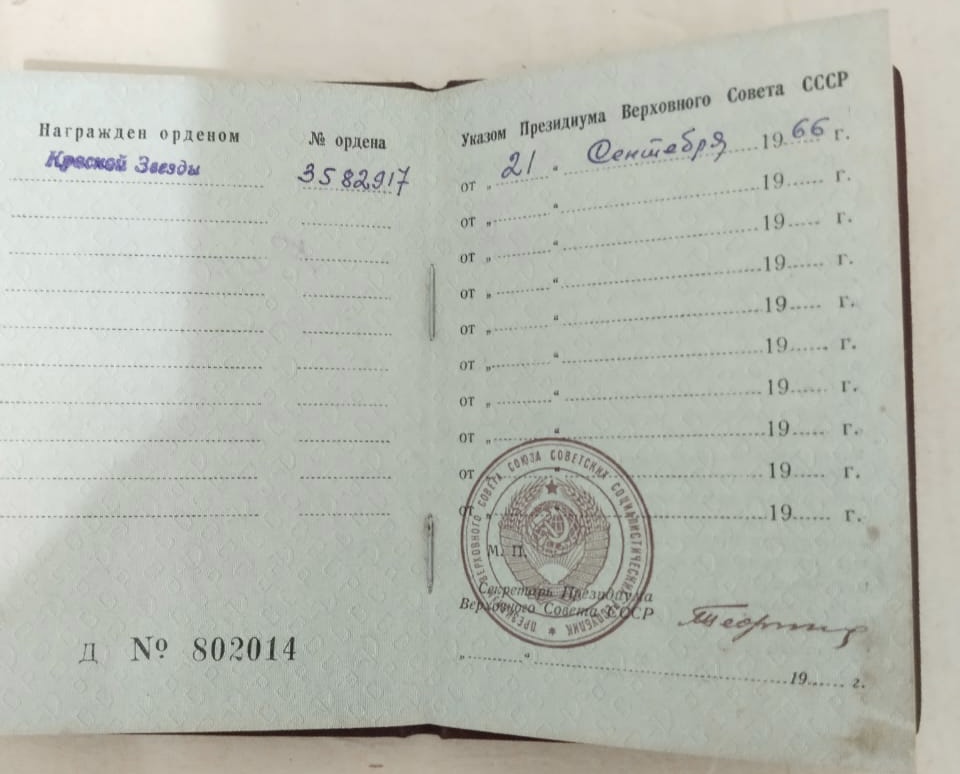 Награжден орденом
№ ордена
Красной Звезды
3582917
Д № 802014
Указом Президиума Верховного Совета СССР
от „ 21 “ Сентября 1966 г.
от „ “ 19 г.
от „ “ 19 г.
от „ “ 19 г.
от „ “ 19 г.
от „ “ 19 г.
от „ “ 19 г.
от „ “ 19 г.
от „ “ 19 г.
от 19 г.
ПРЕЗИДИУМ ВЕРХОВНОГО СОВЕТА СОЮЗА СОВЕТСКИХ СОЦИАЛИСТИЧЕСКИХ РЕСПУБЛИК
М. П.
Секретарь Президиума
Верховного Совета СССР
„ “ 19 г.